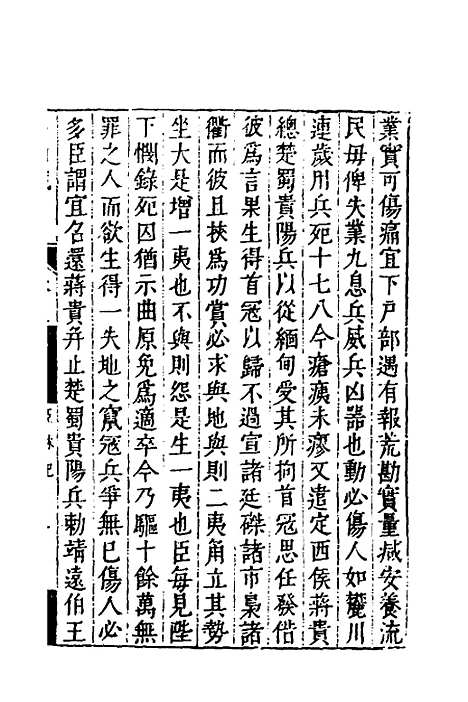 業實可傷痛宜下戸部遇有報荒勘實量减安養流
民毋俾失業九息兵威兵凶器也動必傷人如麓川
連歲用兵死十七八今瘡痍未瘳又遣定西侯蔣貴
總楚蜀貴陽兵以從緬甸受其所拘首冦思任發偕
彼爲言果生得首冦以歸不過宣諸廷磔諸市梟諸
衢而彼且挾爲功賞必求與地與則二夷角立其勢
坐大是增一夷也不與則怨是生一夷也臣每見陛
下憫錄死囚猶示曲原免爲適卒今乃驅十餘萬無
罪之人而欲生得一失地之竄冦兵爭無已傷人必
多臣謂宜名還蔣貴幷止楚蜀貴陽兵勅靖遠伯王